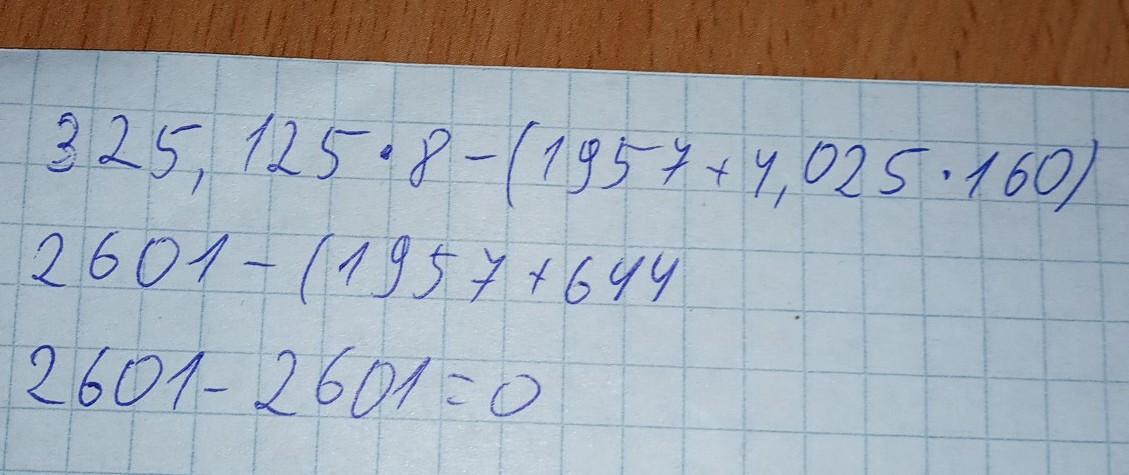 325,125·8-(1957+4,025·160)
2601-(1957+644
2601-2601=0